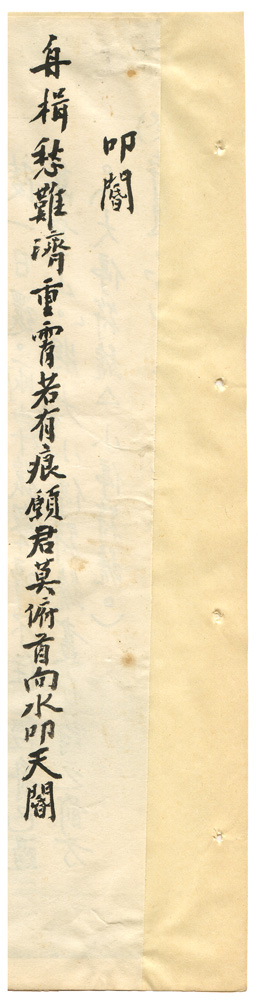 叩閽
舟楫愁難濟重霄若有痕願君莫俯首向水叩天閽